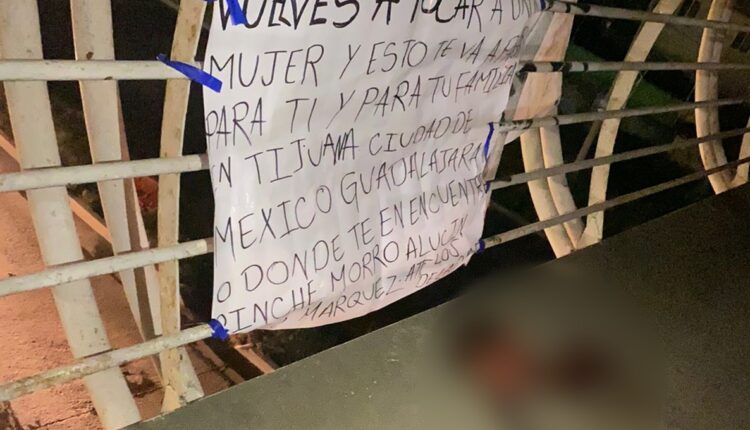 VUELVES A TOCAR A UNA
MUJER Y ESTO TE VA A
PARA TI Y PARA TU FAMILIA
EN TIJUANA CIUDAD DE
MEXICO GUADALAJARA
O DONDE TE EN ENCUENTR
PINCHE MORRO ALUCIN
MARQUEZ ATE LOS